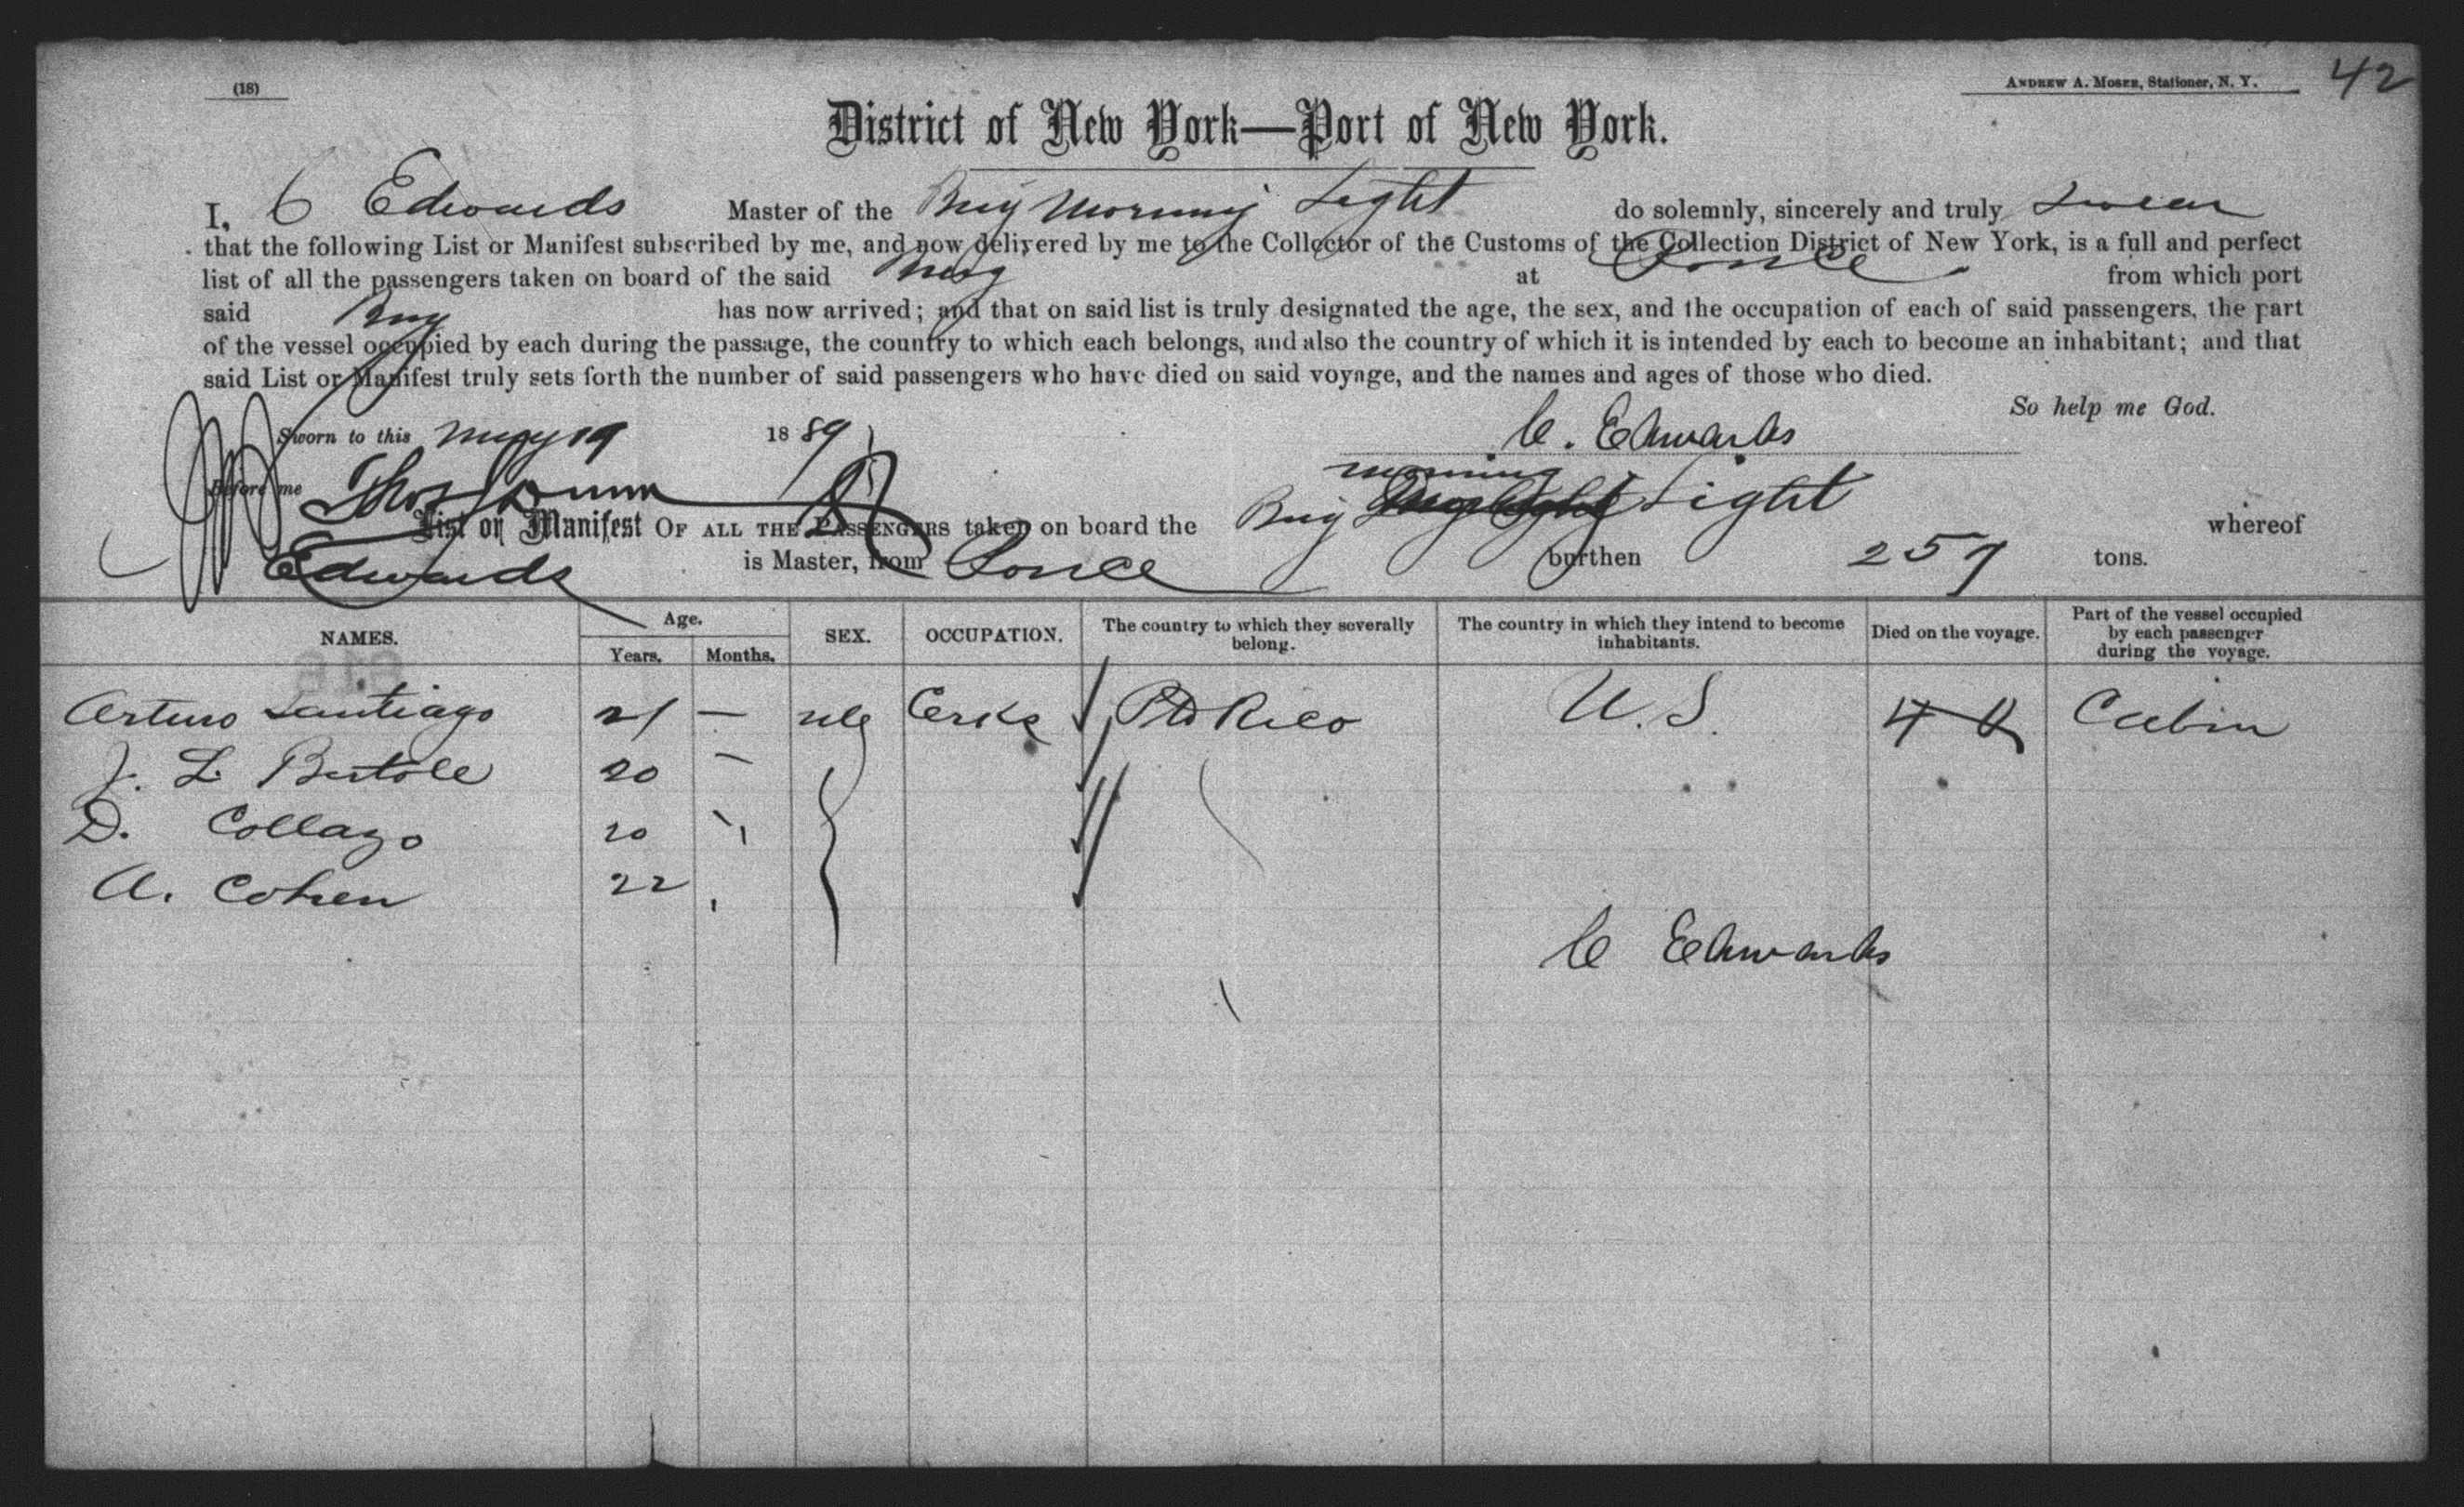 (18)
ANDREW A. MOSER, Stationer, N. Y.
42
District of New York—Port of New York.
I, C Edwards Master of the Brig Morning Light do solemnly, sincerely and truly swear
that the following List or Manifest subscribed by me, and now delivered by me to the Collector of the Customs of the Collection District of New York, is a full and perfect
list of all the passengers taken on board of the said Brig at Ponce from which port
said Brig has now arrived; and that on said list is truly designated the age, the sex, and the occupation of each of said passengers, the part
of the vessel occupied by each during the passage, the country to which each belongs, and also the country of which it is intended by each to become an inhabitant; and that
said List or Manifest truly sets forth the number of said passengers who have died on said voyage, and the names and ages of those who died.
So help me God.
Sworn to this May 19 1889
C. Edwards
Before me Thos Dunn
List or Manifest OF ALL THE PASSENGERS taken on board the Brig Morning Light whereof
Edwards is Master, from Ponce burthen 257 tons.
NAMES.
Age.
Years.
Months.
SEX.
OCCUPATION.
The country to which they severally belong.
The country in which they intend to become inhabitants.
Died on the voyage.
Part of the vessel occupied by each passenger during the voyage.
Arturo Santiago 21 — Clerks Pto Rico U.S. Cabin
J. L. 20 —
D. Collazo 20
A. Cohen 22
C Edwards